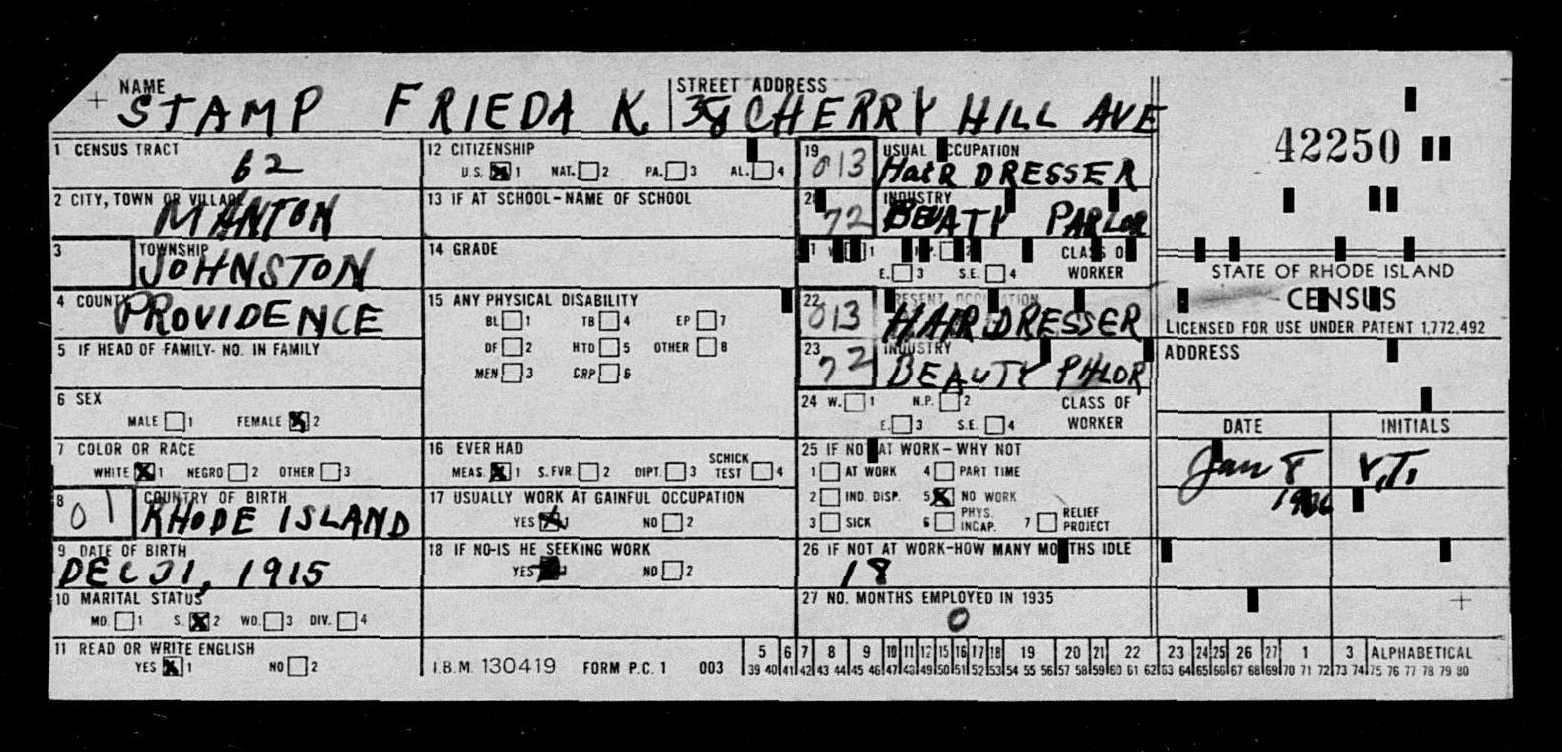 NAME STAMP FRIEDA K STREET ADDRESS 38 CHERRY HILL AVE
1 CENSUS TRACT 62
2 CITY, TOWN OR VILLAGE MANTON
3 TOWNSHIP JOHNSTON
4 COUNTY PROVIDENCE
5 IF HEAD OF FAMILY- NO. IN FAMILY
6 SEX
MALE 1 FEMALE X 2
7 COLOR OR RACE
WHITE X 1 NEGRO 2 OTHER 3
8 01 COUNTRY OF BIRTH RHODE ISLAND
9 DATE OF BIRTH
DEC 31, 1915
10 MARITAL STATUS
MD. 1 S. X 2 WD. 3 DIV. 4
11 READ OR WRITE ENGLISH
YES X 1 NO 2
12 CITIZENSHIP
U.S. X 1 NAT. 2 PA. 3 AL. 4
13 IF AT SCHOOL-NAME OF SCHOOL
14 GRADE
15 ANY PHYSICAL DISABILITY
BL 1 TB 4 EP 7
DF 2 HTD 5 OTHER 8
MEN 3 CRP 6
16 EVER HAD
MEAS. X 1 S.FVR. 2 DIPT. 3 SCHICK TEST 4
17 USUALLY WORK AT GAINFUL OCCUPATION
YES X 1 NO 2
18 IF NO-IS HE SEEKING WORK
YES 1 NO 2
I.B.M. 130419 FORM P.C. 1 003
19 013 USUAL OCCUPATION
HaiR DRESSER
20 72 INDUSTRY
BEUATY PARLOR
1 2 CLASS OF
E. 3 S.E. 4 WORKER
22 013 PRESENT OCCUPATION
HAIR DRESSER
23 72 INDUSTRY
BEAUTY PHLOR
24 W. 1 N.P. 2 CLASS OF
E. 3 S.E. 4 WORKER
25 IF NOT AT WORK-WHY NOT
1 AT WORK 4 PART TIME
2 IND. DISP. 5 X NO WORK
3 SICK 6 PHYS. INCAP. 7 RELIEF PROJECT
26 IF NOT AT WORK-HOW MANY MONTHS IDLE
18
27 NO. MONTHS EMPLOYED IN 1935
0
42250
STATE OF RHODE ISLAND
CENSUS
LICENSED FOR USE UNDER PATENT 1,772,492
ADDRESS
DATE INITIALS
Jan 8 V.T.
5 6 7 8 9 10 11 12 15 16 17 18 19 20 21 22 23 24 25 26 27 1 3 ALPHABETICAL
39 40 41 42 43 44 45 46 47 48 49 50 51 52 53 54 55 56 57 58 59 60 61 62 63 64 65 66 67 68 69 70 71 72 73 74 75 76 77 78 79 80